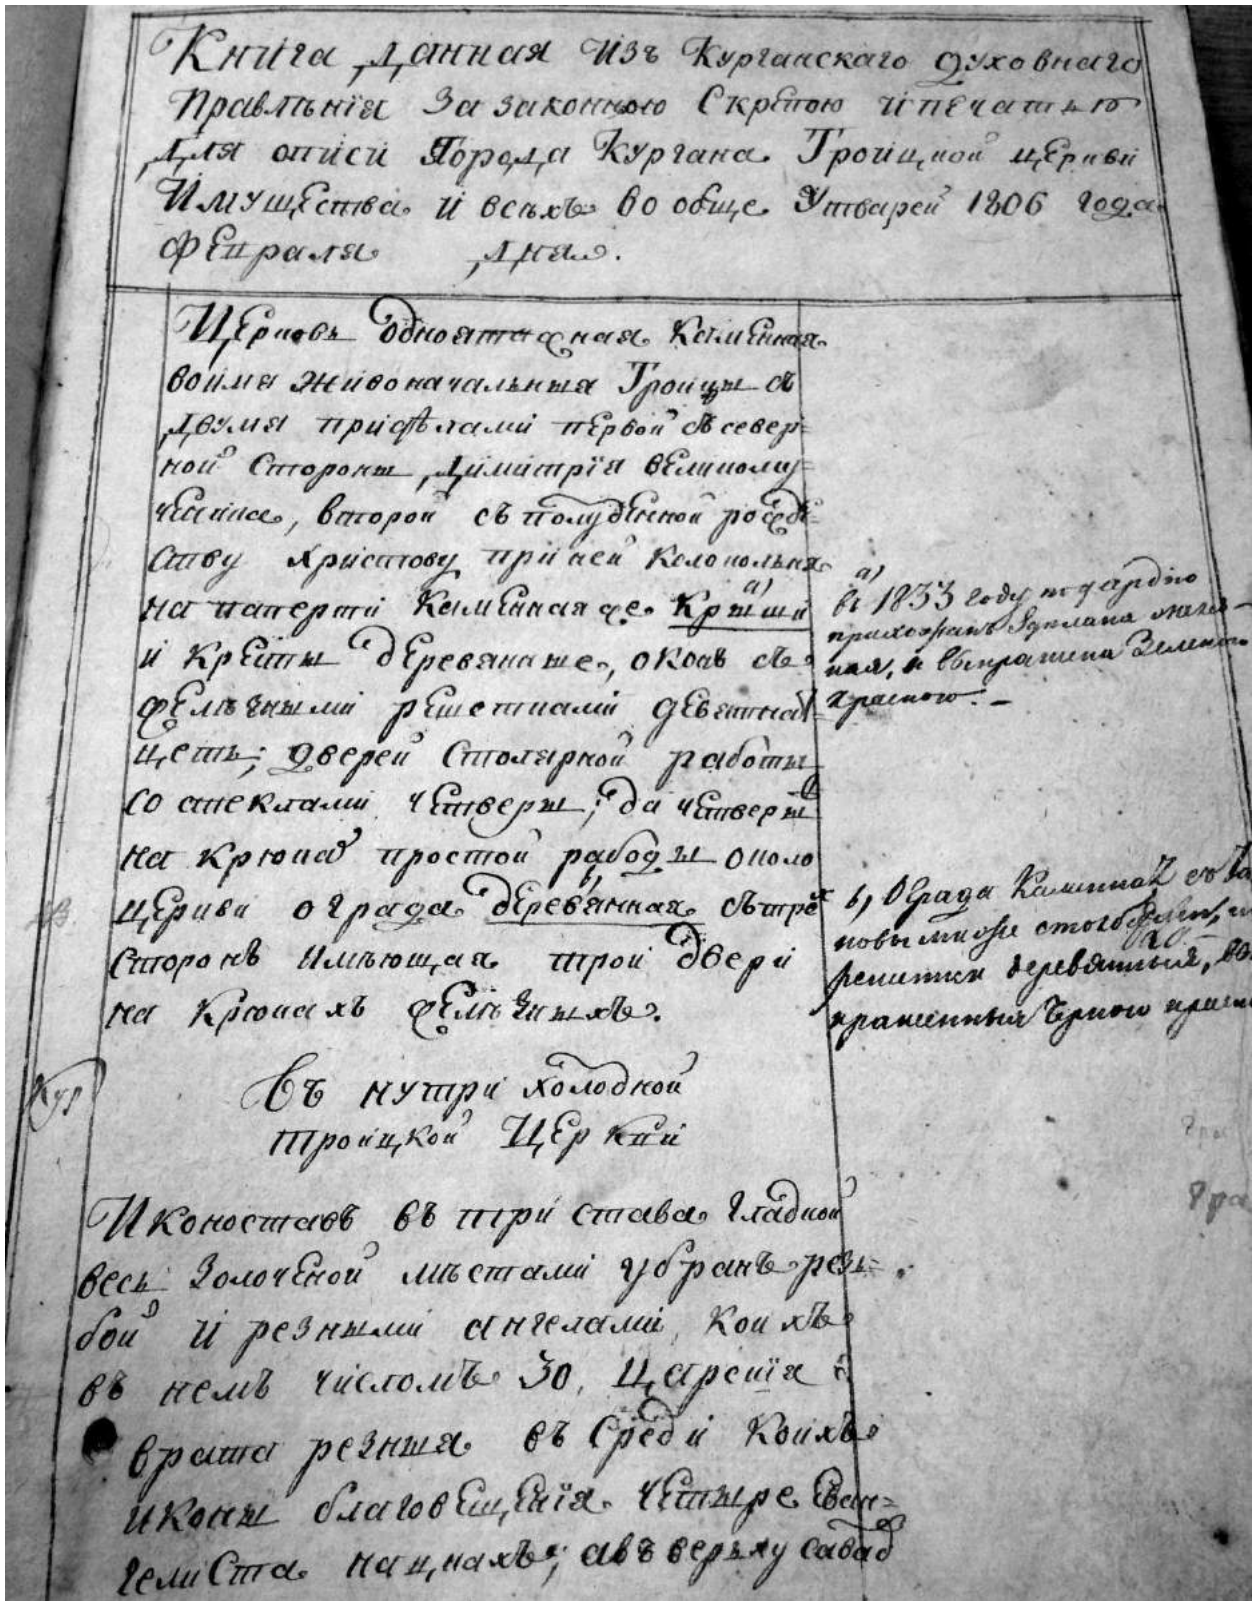 Книга данная Изъ Курганскаго духовнаго
Правленiя За законною Скрепою и печатью
для описи Города Кургана Троицкой церкви
Имущества и всехъ вообще Утварей 1806 года
февраля дня.
Церковь одноэтажная Каменная
воимя живоначальныя Троицы съ
двумя приделами первой съ север=
ной Стороны Димитрiя великому=
ченика, второй съ полуденной рождe=
ству христову при ней Колокольня
на паперти Каменная же Крыши а)
и Кресты деревянные, оконъ съ
железными решетками девятнад=
цеть; дверей Столярной работы
со стеклами четверы; да четверы
на крюкахъ простой работы около
церкви ограда деревянная съ трехъ
Сторонъ имеющая трои двери
на Крюкахъ железныхъ.
а)
въ 1833 году по усердiю
прихожанъ Зделана
и выкрашена Зеленою
краскою. —
в, Ограда Каменная
столбами,
решетки деревянныя,
крашенныя Черною
Кур
Въ нутри холодной
троицкой Церкви
Иконостасъ въ три става гладкой
весь Золоченой местами убранъ резь=
бой и резными ангелами, коихъ
въ немъ числомъ 30, Царскiя
врата резныя въ Среди Коихъ
иконы благовещенiя четыре Еван=
гелиста нацкахъ; авъ верьху саваоф